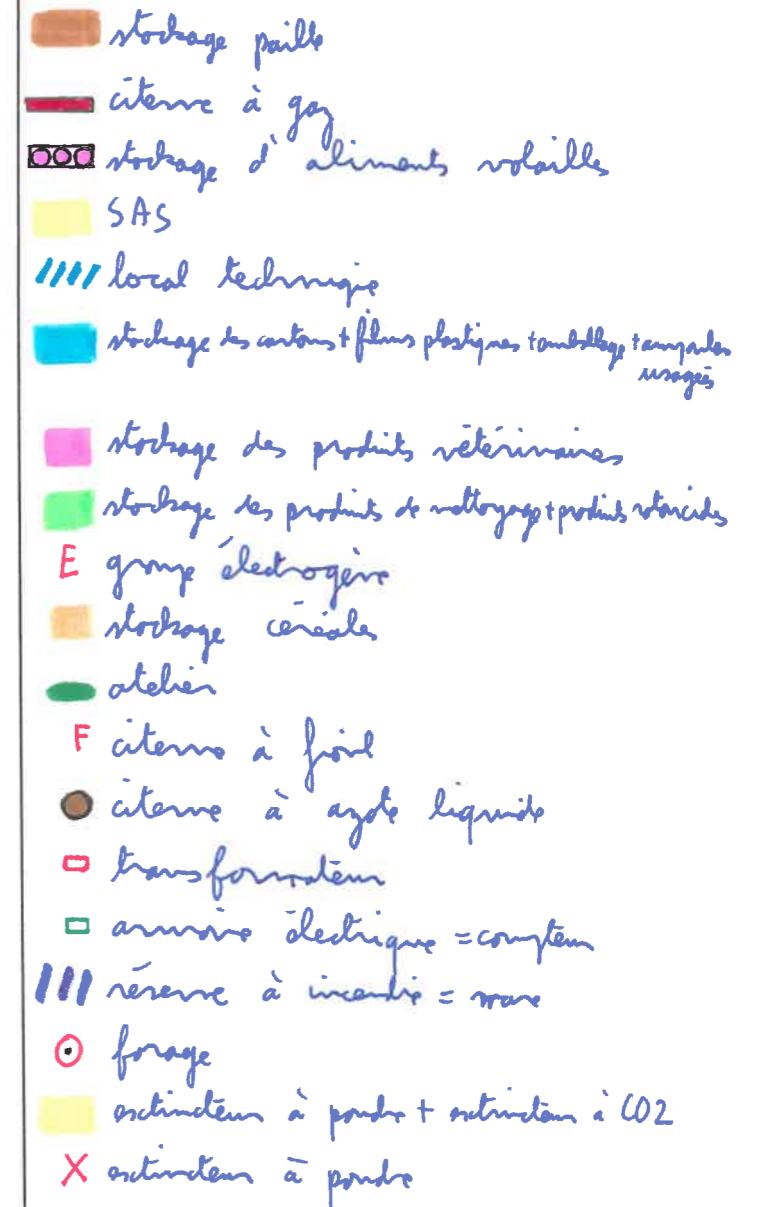 stockage paille
citerne à gaz
stockage d'aliments volailles
SAS
local technique
stockage des cartons + films plastiques + emballage + ampoules
usagées
stockage des produits vétérinaires
stockage des produits de nettoyage + produits rotoncides
E groupe électrogène
stockage céréales
atelier
F citerne à fioul
citerne à azote liquide
transformateur
armoire électrique = compteur
réserve à incendie = mare
forage
extincteur à poudre + extincteur à CO2
X extincteur à poudre